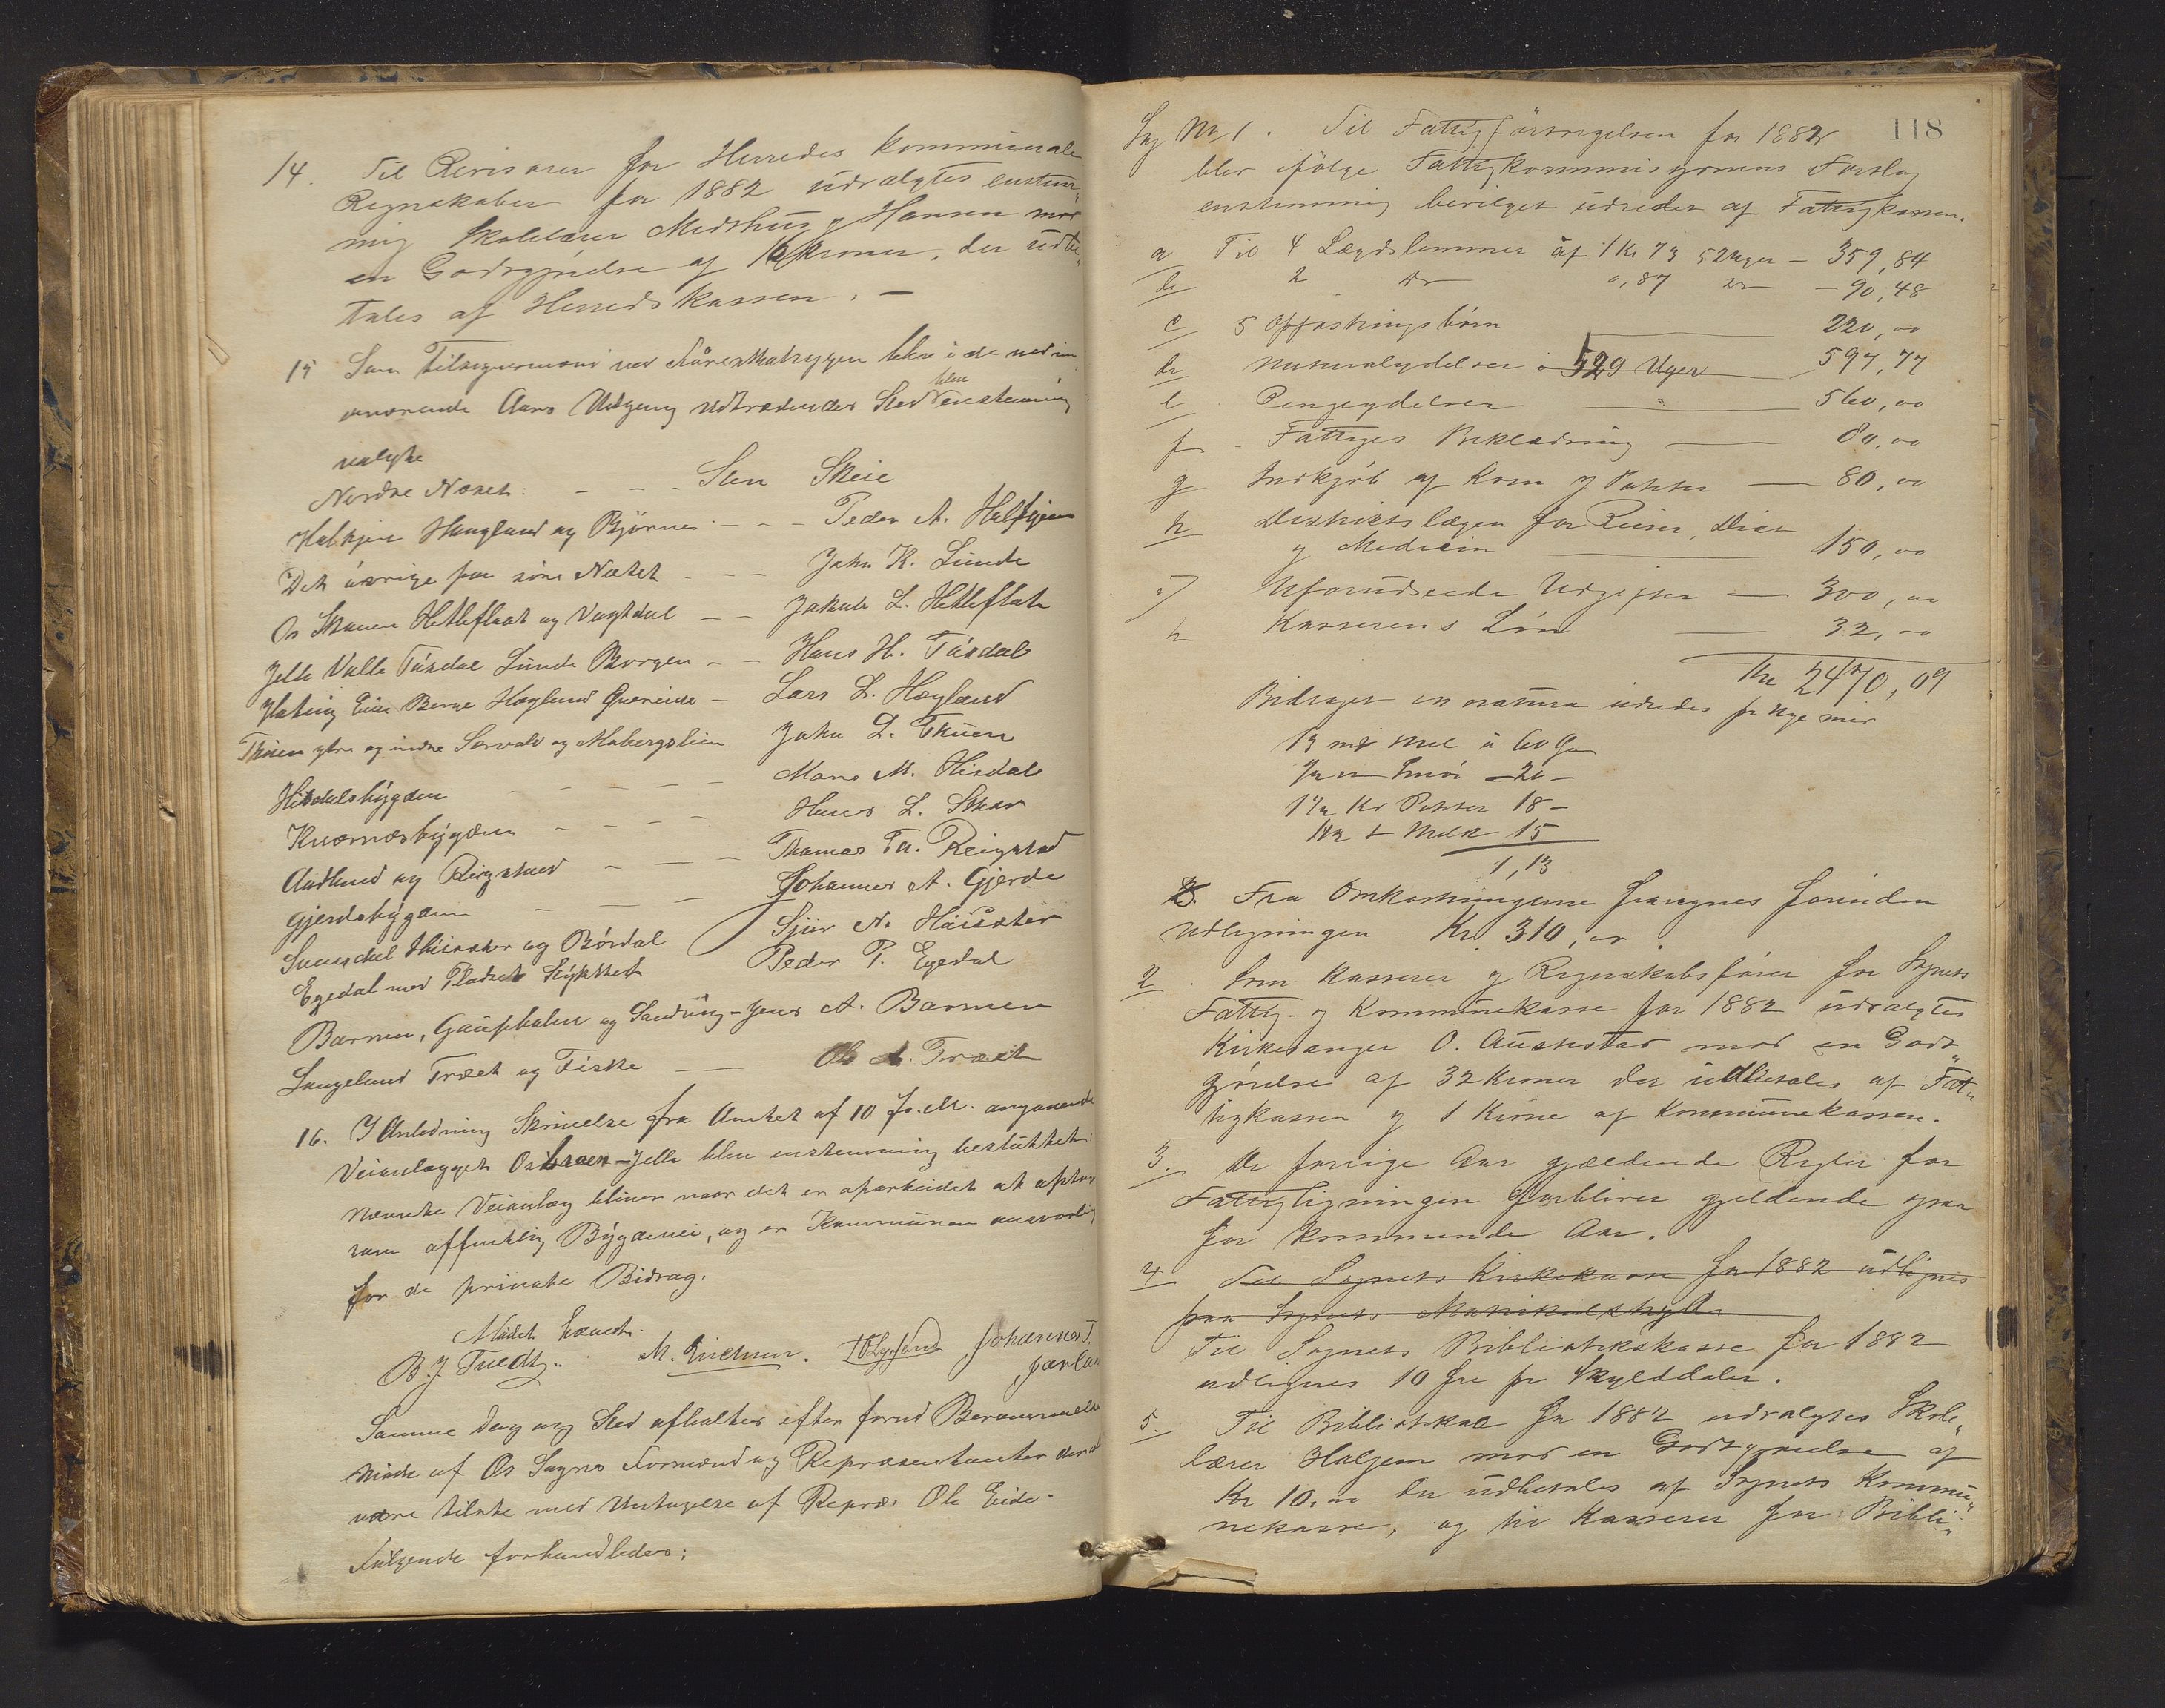 14. Til Revisorer for Herredes kommunale
Regnskaber for 1882 udvalgtes enstem„
mig Skolelærer Midthus og Hansen mod
en Godtgjørelse af 16 Kroner, der udbe„
tales af Herredskassen. —
15 Som Tilsynsmænd ved Faareskabryggen blev i de ved in
anværende Aars Udgang udtrædendes Sted blev enstemmig
valgte
Nordre Næset: — — — Sten Skeie
Halhjem Haugland og Bjørnen — — — Peder A. Halhjem
Det øvrige paa søre Næset — — John K. Lunde
Os Skaven Hetleflaat og Vagtdal — — Jakob L. Hetleflat
Jelle Valle Tøsdal Lunde Borgen — — Hans H. Tøsdal
Hatvig Eide Berge Hægland Gverinde — Lars L. Høgland
Thuen ytre og indre Sørvold og Mobergslien John L. Thuen
Hisdalsbygden — — — — — Mons M. Hisdal
Kuvernæsbygden — — — — Hans L. Skar
Aadland og Reigstad — — — Thomas Th. Reigstad
Gjerdsbygden — — — Johannes A. Gjerde
Svinsdal Høisæter og Børdal Sjur N. Høisæter
Egedal med Pladset Stykket Peder P. Egedal
Barmen, Gaupholm og Sandvig - Jens A. Barmen
Langeland Træet og Fiske — — Ole A. Træet
16. I Anledning Skrivelse fra Amtet af 10 f.M. angaaende
Veianlægget Osbraen - Jelle blev enstemmig besluttet:
nævnte Veianlæg bliver naar det er oparbeidet at optage
som offentlig Bygdevei, og er Kommunen ansvarlig
for de private Bidrag.
Mødet hævet.
B. J. Tvedt. M. Erichsen. Johannes T.
Samme Dag og Sted afholdtes efter forud Berammelse
Møde af Os Sogns Formænd og Repræsentanter der al
være tilstede med Undtagelse af Repræs. Ole Eide.
Følgende forhandledes:
118
Sag No 1. Til Fattigforsørgelsen for 1882
blev ifølge Fattigkommisjonens Forslag
enstemmig bevilget udredet af Fattigkassen.
a Til 4 Lægdslemmer af 1 Kr 73 52 Uger — 359,84
b 2 do 0,87 do — 90,48
c 5 Opfostringsbørn 220,00
d Naturalydelser i 529 Uger 597,77
e Pengeydelser 560,00
f - Fattiges Beklædning — 80,00
g Indkjøb af Korn og Poteter — 80,00
h Distriktslægen for Reiser, Diæt
og Medicin 150,00
i Uforudseede Udgifter — 300,00
k Kassererens Løn — 32,00
Kr 2470,09
Bidraget in natura udredes pr Uge med
13 mk Mel à 60 Øre
1/2 " Smør — 20 —
1 1/2 Kr Poteter 18 —
1 1/2 " Melk 15
1,13
Fra Omkostningerne fraregnes forinden
Udligningen Kr 310,00.
2. Som Kasserer og Regnskabsfører for Sognets
Fattig- og Kommunekasse for 1882 udvalgtes
Kirkesanger O. Austestad mod en Godt„
gjørelse af 32 Kroner der udbetales af Fat„
tigkassen og 1 Krone af Kommunekassen.
3. De forrige Aar gjældende Regler for
Fattigligningen forbliver gjeldende ogsaa
for kommende Aar.
4 Til Sognets Kirkekasse for 1882 udlignes
paa Sognets Matrikulskyld
Til Sognets Bibliothekskasse for 1882
udlignes 10 Øre pr Skylddaler.
5. Til Bibliothekar for 1882 udvalgtes Skole„
lærer Haljem mod en Godtgjørelse af
Kr 10,00 der udbetales af Sognets Kommu„
nekasse, og til Kasserer for Bibli„